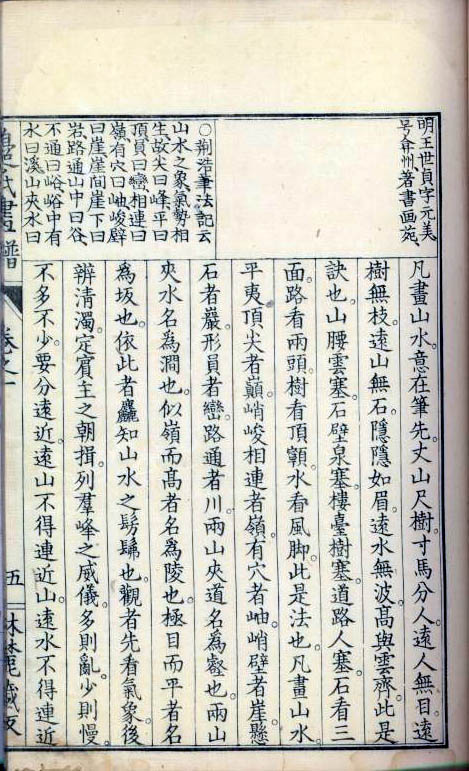 明王世貞字元美
号弇州著書画苑、
○荆浩筆法記云
山水之象、氣勢相
生、故尖曰峰、平曰
頂、員曰巒、相連曰
嶺、有穴曰岫、峻壁
曰崖、崖間崖下曰
岩、路通山中曰谷、
不通曰峪、峪中有
水曰溪、山夾水曰
凡畫山水。意在筆先。丈山尺樹。寸馬分人。遠人無目。遠
樹無枝。遠山無石。隱隱如眉。遠水無波。高與雲齊。此是
訣也。山腰雲塞。石壁泉塞。樓臺樹塞。道路人塞。石看三
面。路看兩頭。樹看頂顊。水看風脚。此是法也。凡畫山水
平夷頂尖者巔。峭峻相連者嶺。有穴者岫。峭壁者崖。懸
石者巖。形員者巒。路通者川。兩山夾道名為壑也。兩山
夾水名為澗也。似嶺而高者名爲陵也。極目而平者名
為坂也。依此者麤知山水之髣髴也。觀者先看氣象後
辨清濁。定賓主之朝揖。列羣峰之威儀。多則亂。少則慢。
不多不少。要分遠近。遠山不得連近山。遠水不得連近
五